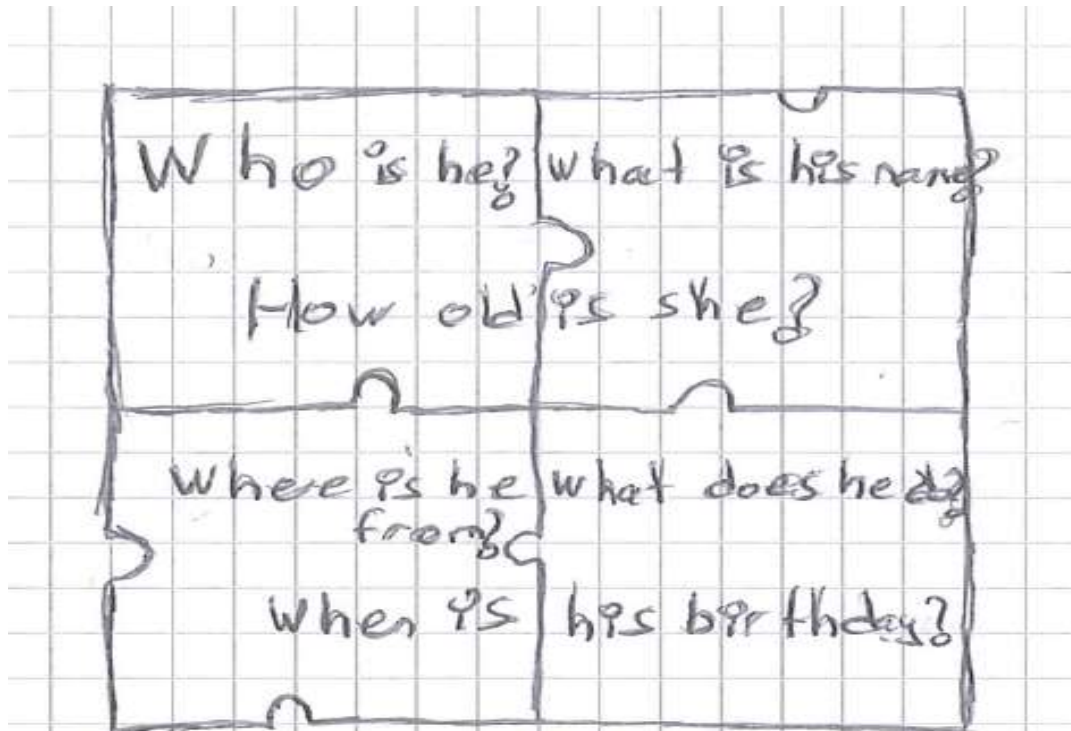 Who is he? What is his name?
How old is she?
Where is he What does he do?
from?
When is his birthday?